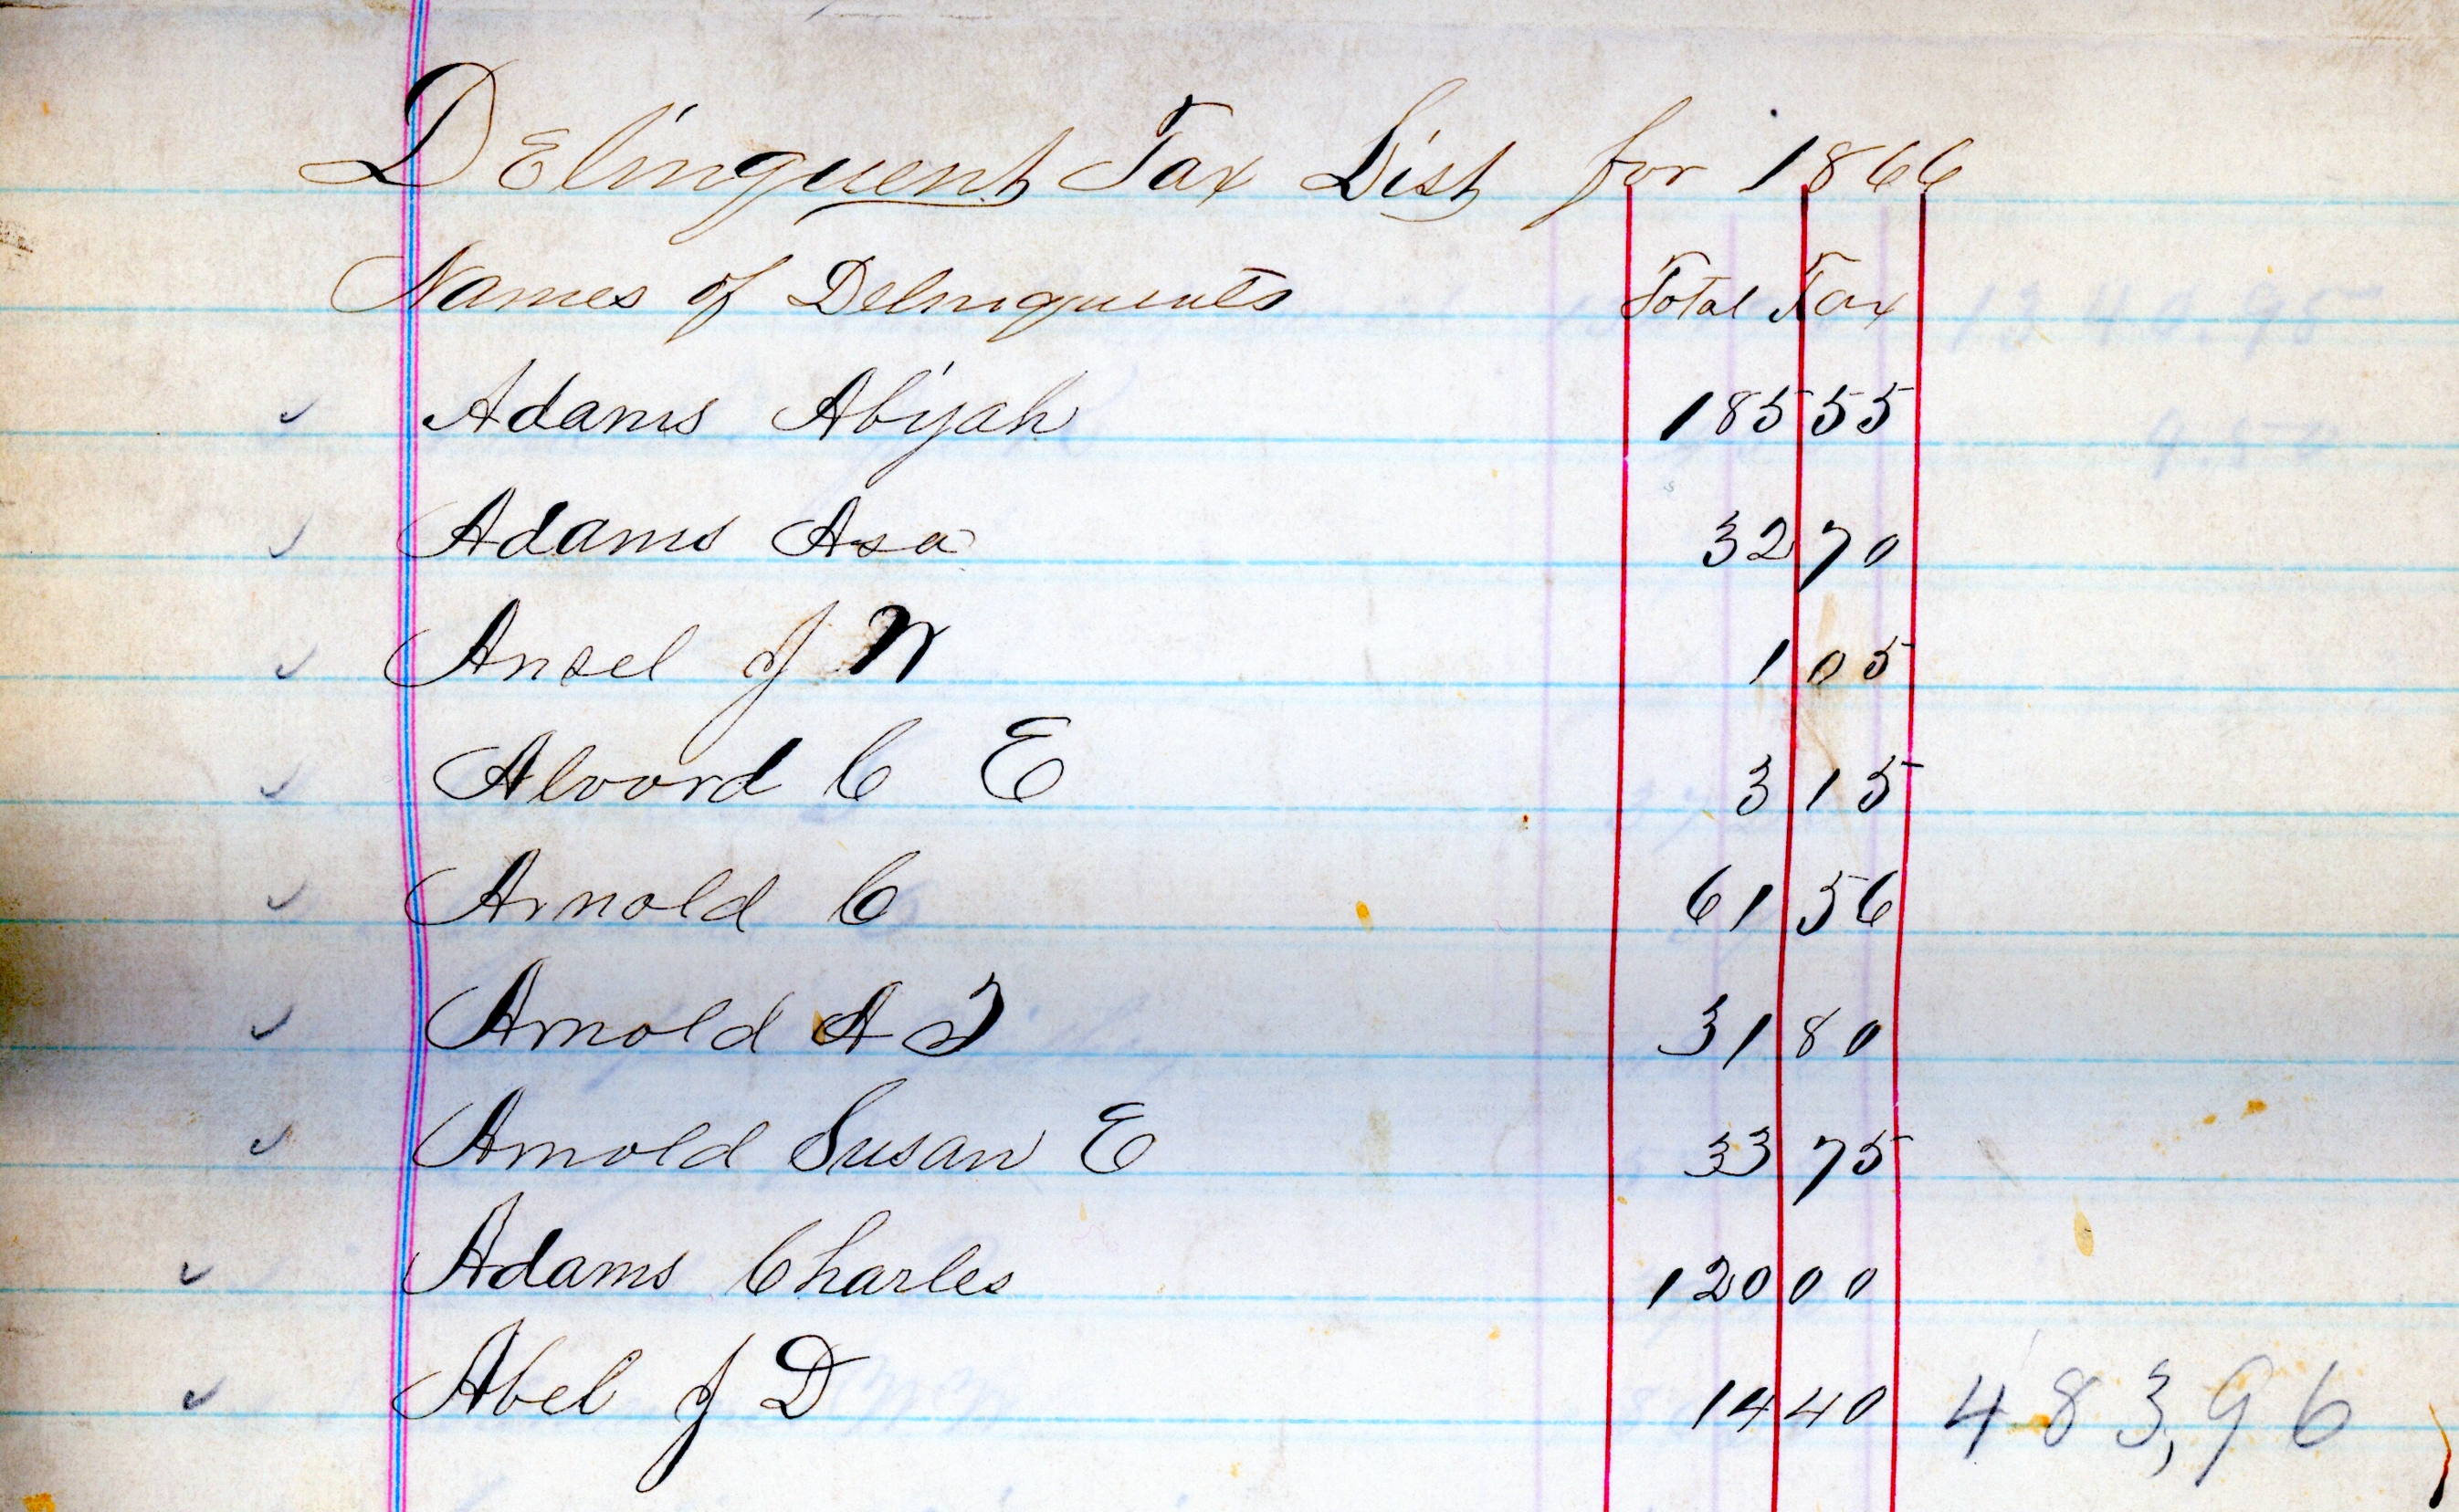 DElinquent Tax List for 1866
Names of Delinquents Total Tax
Adams Abijah 185 55
Adams Asa 32 70
Ansel J W 1 05
Alvord C E 3 15
Arnold C 61 56
Arnold A S 31 80
Arnold Susan E 33 75
Adams Charles 120 00
Abel J D 14 40 483,96